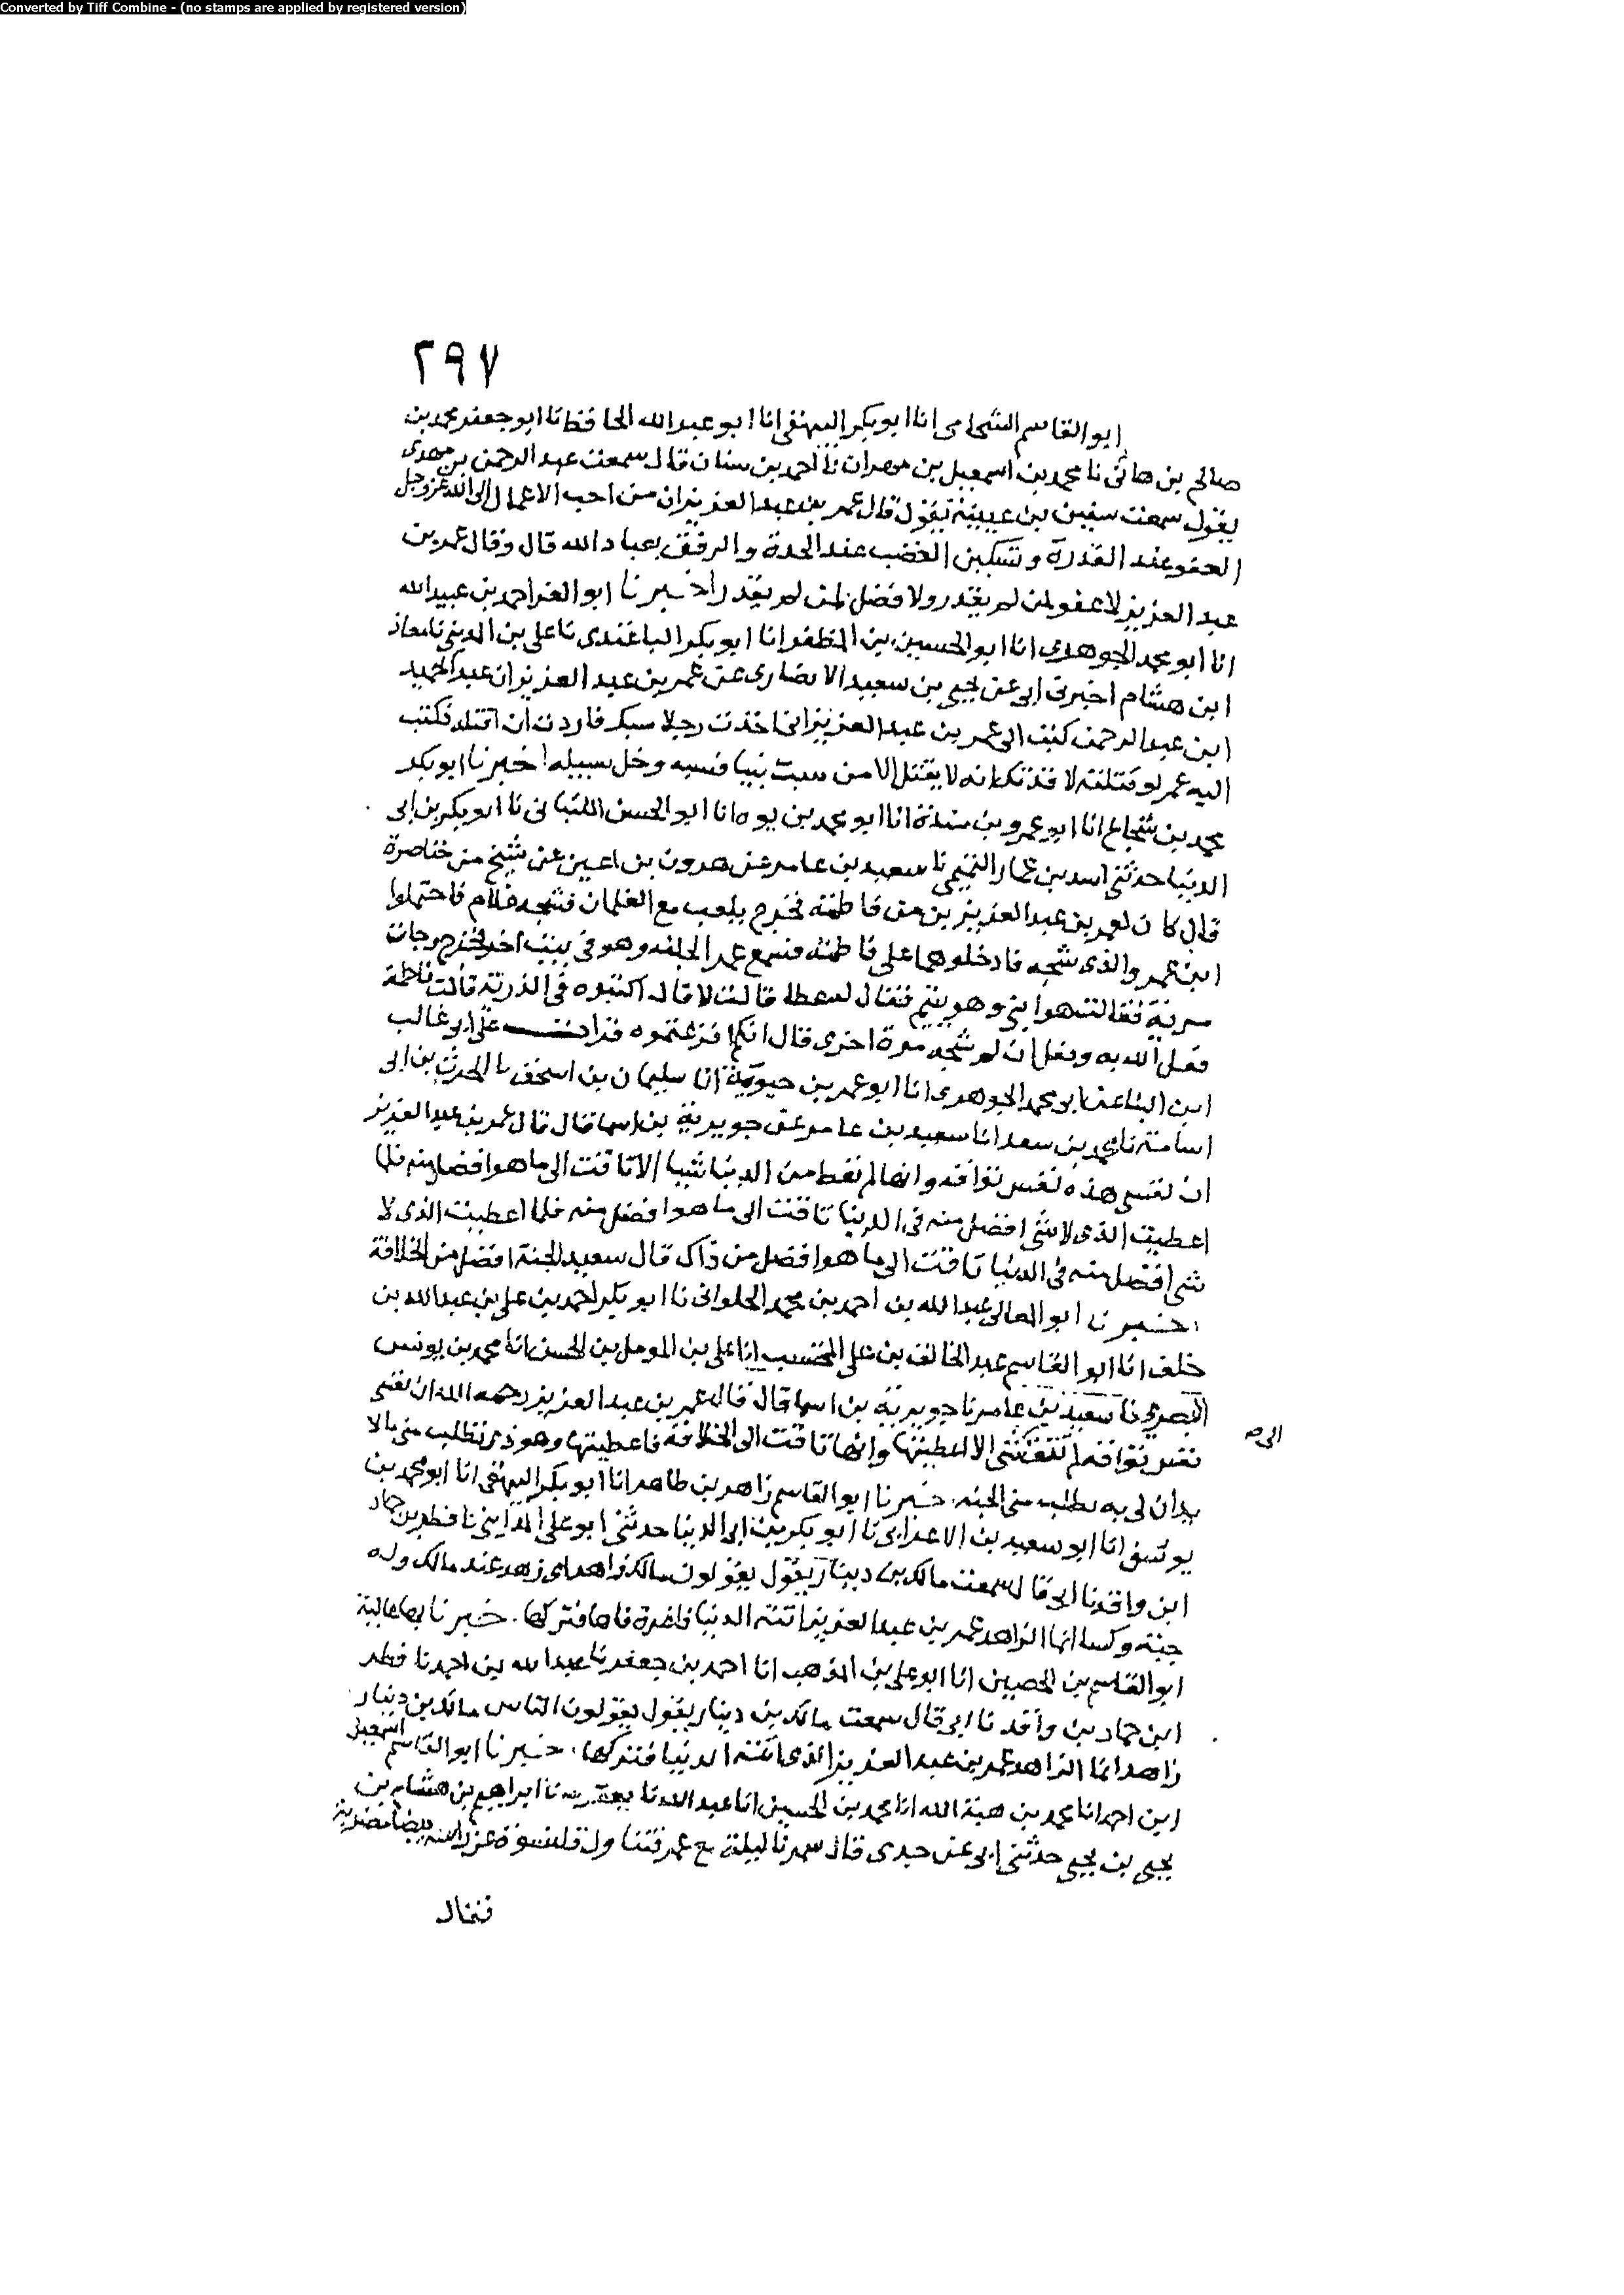 Converted by Tiff Combine - (no stamps are applied by registered version)
٢٩٧
ابو القاسم الشحامى انا ابو بكر البيهقى انا ابو عبد الله الحافظ نا ابو جعفر محمد بن
صالح بن هانى نا محمد بن اسمعيل بن مهران نا احمد بن سنان قال سمعت عبد الرحمن بن مهدى
يقول سمعت سفين بن عيينة يقول قال عمر بن عبد العزيز ان من احب الاعمال الى الله عز وجل
العفو عند القدرة وتسكين الغضب عند الحدة والرفق بعباد الله قال وقال عمر بن
عبد العزيز لا عفو لمن لم يقدر ولا فضل لمن لم يقدر اخبرنا ابو العز احمد بن عبيد الله
انا ابو محمد الجوهرى انا ابو الحسين بن المظفر انا ابو بكر الباغندى نا على بن المدينى نا معاذ
ابن هشام اخبرنى ابى عن يحيى بن سعيد الانصارى عن عمر بن عبد العزيز ان عبد الحميد
ابن عبد الرحمن كتب الى عمر بن عبد العزيز انى اخذت رجلا سبك فاردت ان اقتله فكتب
اليه عمر لو قتلته لاقدتك انه لا يقتل الا من سب نبيا فسبه وخل سبيله اخبرنا ابو بكر
محمد بن شجاع انا ابو عمرو بن مندة انا ابو محمد بن يوه انا ابو الحسن اللنبانى نا ابو بكر بن ابى
الدنيا حدثنى اسد بن عمار التميمى نا سعيد بن عامر عن هرون بن اعين عن شيخ من خناصرة
قال كان لعمر بن عبد العزيز بن من فاطمة فخرج يلعب مع الغلمان فشجه غلام فاحتملوا
ابن عمر والذى شجه فادخلوهما على فاطمة فسمع عمر الجلبه وهو فى بيت اخر فخرج وجات
مرية فقالت هو ابنى وهو يتيم فقال له عطا قالت لا قال اكتبوه فى الذرية قالت فاطمة
فعل الله به وفعل ان لم شجه مرة اخرى قال انكم افزعتموه قرات على ابى غالب
ابن البنا عن ابى محمد الجوهرى انا ابو عمر بن حيوية انا سليمان بن اسحق نا الحرث بن ابى
اسامة نا محمد بن سعد انا سعيد بن عامر عن جويرية بن اسما قال قال عمر بن عبد العزيز
ان نفسى هذه نفس تواقه وانها لم تعط من الدنيا شيا الا تاقت الى ما هو افضل منه فلما
اعطيت الذى لا شى افضل منه فى الدنيا تاقت الى ما هو افضل منه فلما اعطيت الذى لا
شى افضل منه فى الدنيا تاقت الى ما هو افضل من ذاك قال سعيد الجنة افضل من الخلافة
اخبرنا ابو المعالى عبد الله بن احمد بن محمد الحلوانى نا ابو بكر احمد بن على بن عبد الله بن
خلف انا ابو القاسم عبد الخالق بن على المحتسب انا على بن المومل بن الحسن انا محمد بن يونس
البصرى نا سعيد بن عامر نا جويرية بن اسما قال قال عمر بن عبد العزيز رحمه الله ان نفسى
نفس تواقه لم تتق شى الا اعطيتها وانها تاقت الى الخلافة فاعطيتها وهو ذى تطلب منى ما لا
الى صـ
يدان لى به تطلب منى الجنة . اخبرنا ابو القاسم زاهر بن طاهر انا ابو بكر البيهقى انا ابو محمد بن
يوسف انا ابو سعيد بن الاعرابى نا ابو بكر بن ابى الدنيا حدثنى ابو على المداينى نا فطر بن حماد
ابن واقد نا ابى قال سمعت مالك بن دينار يقول يقولون مالك زاهد اى زهد عند مالك وله
جبة وكسا انما الزاهد عمر بن عبد العزيز اتته الدنيا فاغرة فاها فتركها . اخبرنا بها عالية
ابو القاسم بن الحصين انا ابو على بن المذهب انا احمد بن جعفر نا عبد الله بن احمد نا فطر
ابن حماد بن واقد نا ابى قال سمعت مالك بن دينار يقول يقولون الناس مالك بن دينار
زاهد انما الزاهد عمر بن عبد العزيز الذى اتته الدنيا فتركها . اخبرنا ابو القاسم اسمعيل
ابن احمد انا محمد بن هبة الله انا محمد بن الحسين انا عبد الله نا يعقوب نا ابراهيم بن هشام بن
يحيى بن يحيى حدثنى ابى عن جدى قال سمرنا ليلة مع عمر قلنسوة بيضا مضربة
فقال